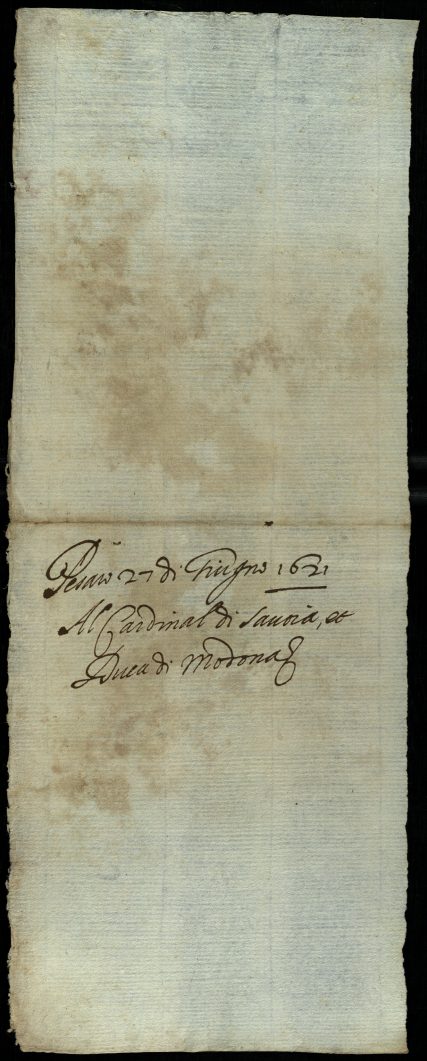 Pesaro 27 di Giugno 1621
Al Cardinal di Sauoia, et
Duca di Modona